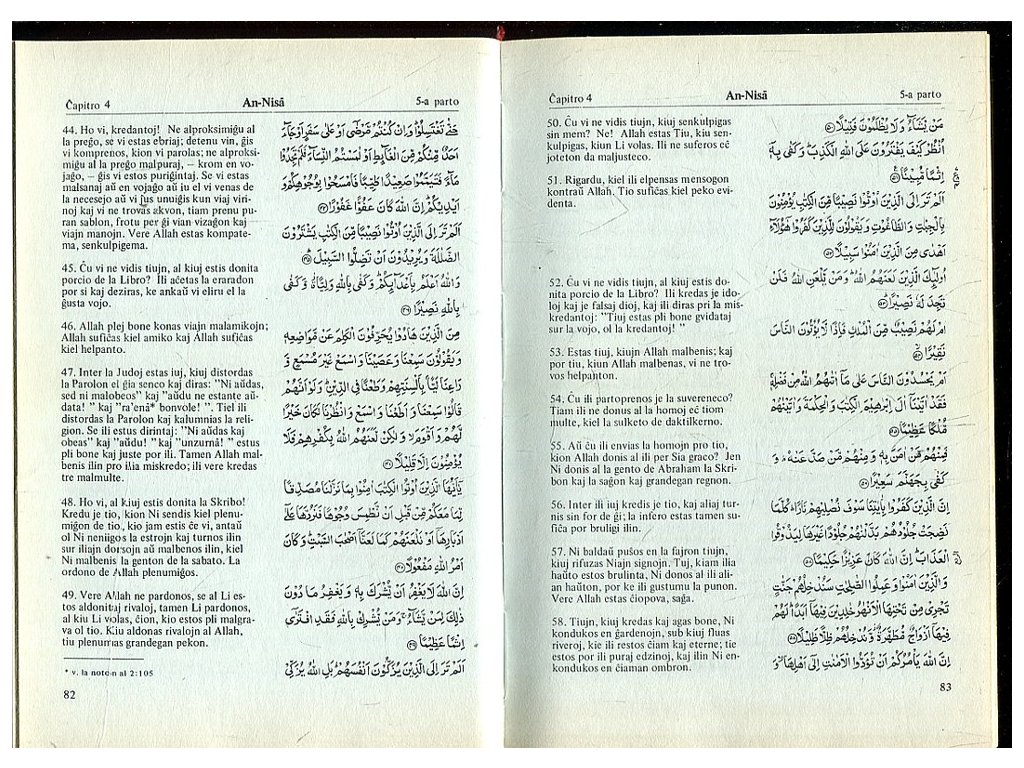 Ĉapitro 4
An-Nisâ
5-a parto
44. Ho vi, kredantoj! Ne alproksimiĝu al
la preĝo, se vi estas ebriaj; detenu vin, ĝis
vi komprenos, kion vi parolas; ne alproksi-
miĝu al la preĝo malpuraj, – krom en vo-
jaĝo, – ĝis vi estos puriĝintaj. Se vi estas
malsanaj aŭ en vojaĝo aŭ iu el vi venas de
la necesejo aŭ vi ĵus unuiĝis kun viaj viri-
noj kaj vi ne trovas akvon, tiam prenu pu-
ran sablon, frotu per ĝi vian vizaĝon kaj
viajn manojn. Vere Allah estas kompate-
ma, senkulpigema.
45. Ĉu vi ne vidis tiujn, al kiuj estis donita
porcio de la Libro? Ili aĉetas la eraradon
por si kaj deziras, ke ankaŭ vi eliru el la
ĝusta vojo.
46. Allah plej bone konas viajn malamikojn;
Allah sufiĉas kiel amiko kaj Allah sufiĉas
kiel helpanto.
47. Inter la Judoj estas iuj, kiuj distordas
la Parolon el ĝia senco kaj diras: "Ni aŭdas,
sed ni malobeos" kaj "aŭdu ne estante aŭ-
data! " kaj "ra'enâ* bonvole! ". Tiel ili
distordas la Parolon kaj kalumnias la reli-
gion. Se ili estus dirintaj: "Ni aŭdas kaj
obeas" kaj "aŭdu! " kaj "unzurnâ! " estus
pli bone kaj juste por ili. Tamen Allah mal-
benis ilin pro ilia miskredo; ili vere kredas
tre malmulte.
48. Ho vi, al kiuj estis donita la Skribo!
Kredu je tio, kion Ni sendis kiel plenu-
miĝon de tio, kio jam estis ĉe vi, antaŭ
ol Ni neniigos la estrojn kaj turnos ilin
sur iliajn dorsojn aŭ malbenos ilin, kiel
Ni malbenis la genton de la sabato. La
ordono de Allah plenumiĝos.
49. Vere Allah ne pardonos, se al Li es-
tos aldonitaj rivaloj, tamen Li pardonos,
al kiu Li volas, ĉion, kio estos pli malgra-
va ol tio. Kiu aldonas rivalojn al Allah,
tiu plenumas grandegan pekon.
* v. la noton al 2:105
حَتّٰى تَغْتَسِلُوْا وَاِنْ كُنْتُمْ مَّرْضٰٓى اَوْ عَلٰى سَفَرٍ اَوْ جَآءَ
اَحَدٌ مِّنْكُمْ مِّنَ الْغَآئِطِ اَوْ لٰمَسْتُمُ النِّسَآءَ فَلَمْ تَجِدُوْا
مَآءً فَتَيَمَّمُوْا صَعِيْدًا طَيِّبًا فَامْسَحُوْا بِوُجُوْهِكُمْ وَ
اَيْدِيْكُمْ اِنَّ اللّٰهَ كَانَ عَفُوًّا غَفُوْرًا ۝٤٤
اَلَمْ تَرَ اِلَى الَّذِيْنَ اُوْتُوْا نَصِيْبًا مِّنَ الْكِتٰبِ يَشْتَرُوْنَ
الضَّلٰلَةَ وَيُرِيْدُوْنَ اَنْ تَضِلُّوا السَّبِيْلَ ۝٤٥
وَاللّٰهُ اَعْلَمُ بِاَعْدَآئِكُمْ وَكَفٰى بِاللّٰهِ وَلِيًّا وَّكَفٰى
بِاللّٰهِ نَصِيْرًا ۝٤٦
مِنَ الَّذِيْنَ هَادُوْا يُحَرِّفُوْنَ الْكَلِمَ عَنْ مَّوَاضِعِهٖ
وَيَقُوْلُوْنَ سَمِعْنَا وَعَصَيْنَا وَاسْمَعْ غَيْرَ مُسْمَعٍ وَّ
رَاعِنَا لَيًّا بِاَلْسِنَتِهِمْ وَطَعْنًا فِى الدِّيْنِ وَلَوْ اَنَّهُمْ
قَالُوْا سَمِعْنَا وَاَطَعْنَا وَاسْمَعْ وَانْظُرْنَا لَكَانَ خَيْرًا
لَّهُمْ وَاَقْوَمَ وَلٰكِنْ لَّعَنَهُمُ اللّٰهُ بِكُفْرِهِمْ فَلَا
يُؤْمِنُوْنَ اِلَّا قَلِيْلًا ۝٤٧
يٰٓاَيُّهَا الَّذِيْنَ اُوْتُوا الْكِتٰبَ اٰمِنُوْا بِمَا نَزَّلْنَا مُصَدِّقًا
لِّمَا مَعَكُمْ مِّنْ قَبْلِ اَنْ نَّطْمِسَ وُجُوْهًا فَنَرُدَّهَا عَلٰٓى
اَدْبَارِهَآ اَوْ نَلْعَنَهُمْ كَمَا لَعَنَّآ اَصْحٰبَ السَّبْتِ وَكَانَ
اَمْرُ اللّٰهِ مَفْعُوْلًا ۝٤٨
اِنَّ اللّٰهَ لَا يَغْفِرُ اَنْ يُّشْرَكَ بِهٖ وَيَغْفِرُ مَا دُوْنَ
ذٰلِكَ لِمَنْ يَّشَآءُ وَمَنْ يُّشْرِكْ بِاللّٰهِ فَقَدِ افْتَرٰٓى
اِثْمًا عَظِيْمًا ۝٤٩
اَلَمْ تَرَ اِلَى الَّذِيْنَ يُزَكُّوْنَ اَنْفُسَهُمْ بَلِ اللّٰهُ يُزَكِّيْ
82
Ĉapitro 4
An-Nisâ
5-a parto
50. Ĉu vi ne vidis tiujn, kiuj senkulpigas
sin mem? Ne! Allah estas Tiu, kiu sen-
kulpigas, kiun Li volas. Ili ne suferos eĉ
joteton da maljusteco.
51. Rigardu, kiel ili elpensas mensogon
kontraŭ Allah. Tio sufiĉas kiel peko evi-
denta.
52. Ĉu vi ne vidis tiujn, al kiuj estis do-
nita porcio de la Libro? Ili kredas je ido-
loj kaj je falsaj dioj, kaj ili diras pri la mis-
kredantoj: "Tiuj estas pli bone gvidataj
sur la vojo, ol la kredantoj! "
53. Estas tiuj, kiujn Allah malbenis; kaj
por tiu, kiun Allah malbenas, vi ne tro-
vos helpanton.
54. Ĉu ili partoprenos je la suvereneco?
Tiam ili ne donus al la homoj eĉ tiom
multe, kiel la sulketo de daktilkerno.
55. Aŭ ĉu ili envias la homojn pro tio,
kion Allah donis al ili per Sia graco? Jen
Ni donis al la gento de Abraham la Skri-
bon kaj la saĝon kaj grandegan regnon.
56. Inter ili iuj kredis je tio, kaj aliaj tur-
nis sin for de ĝi; la infero estas tamen su-
fiĉa por bruligi ilin.
57. Ni baldaŭ puŝos en la fajron tiujn,
kiuj rifuzas Niajn signojn. Tuj, kiam ilia
haŭto estos brulinta, Ni donos al ili ali-
an haŭton, por ke ili gustumu la punon.
Vere Allah estas ĉiopova, saĝa.
58. Tiujn, kiuj kredas kaj agas bone, Ni
kondukos en ĝardenojn, sub kiuj fluas
riveroj, kie ili restos ĉiam kaj eterne; tie
estos por ili puraj edzinoj, kaj ilin Ni en-
kondukos en ĉiaman ombron.
مَنْ يَّشَآءُ وَلَا يُظْلَمُوْنَ فَتِيْلًا ۝٥٠
اُنْظُرْ كَيْفَ يَفْتَرُوْنَ عَلَى اللّٰهِ الْكَذِبَ وَكَفٰى بِهٖٓ
اِثْمًا مُّبِيْنًا ۝٥١
اَلَمْ تَرَ اِلَى الَّذِيْنَ اُوْتُوْا نَصِيْبًا مِّنَ الْكِتٰبِ يُؤْمِنُوْنَ
بِالْجِبْتِ وَالطَّاغُوْتِ وَيَقُوْلُوْنَ لِلَّذِيْنَ كَفَرُوْا هٰٓؤُلَآءِ
اَهْدٰى مِنَ الَّذِيْنَ اٰمَنُوْا سَبِيْلًا ۝٥٢
اُولٰٓئِكَ الَّذِيْنَ لَعَنَهُمُ اللّٰهُ وَمَنْ يَّلْعَنِ اللّٰهُ فَلَنْ
تَجِدَ لَهٗ نَصِيْرًا ۝٥٣
اَمْ لَهُمْ نَصِيْبٌ مِّنَ الْمُلْكِ فَاِذًا لَّا يُؤْتُوْنَ النَّاسَ
نَقِيْرًا ۝٥٤
اَمْ يَحْسُدُوْنَ النَّاسَ عَلٰى مَآ اٰتٰىهُمُ اللّٰهُ مِنْ فَضْلِهٖ
فَقَدْ اٰتَيْنَآ اٰلَ اِبْرٰهِيْمَ الْكِتٰبَ وَالْحِكْمَةَ وَاٰتَيْنٰهُمْ
مُّلْكًا عَظِيْمًا ۝٥٥
فَمِنْهُمْ مَّنْ اٰمَنَ بِهٖ وَمِنْهُمْ مَّنْ صَدَّ عَنْهُ وَ
كَفٰى بِجَهَنَّمَ سَعِيْرًا ۝٥٦
اِنَّ الَّذِيْنَ كَفَرُوْا بِاٰيٰتِنَا سَوْفَ نُصْلِيْهِمْ نَارًا كُلَّمَا
نَضِجَتْ جُلُوْدُهُمْ بَدَّلْنٰهُمْ جُلُوْدًا غَيْرَهَا لِيَذُوْقُوا
الْعَذَابَ اِنَّ اللّٰهَ كَانَ عَزِيْزًا حَكِيْمًا ۝٥٧
وَالَّذِيْنَ اٰمَنُوْا وَعَمِلُوا الصّٰلِحٰتِ سَنُدْخِلُهُمْ جَنّٰتٍ
تَجْرِيْ مِنْ تَحْتِهَا الْاَنْهٰرُ خٰلِدِيْنَ فِيْهَآ اَبَدًا لَهُمْ
فِيْهَآ اَزْوَاجٌ مُّطَهَّرَةٌ وَّنُدْخِلُهُمْ ظِلًّا ظَلِيْلًا ۝٥٨
اِنَّ اللّٰهَ يَاْمُرُكُمْ اَنْ تُؤَدُّوا الْاَمٰنٰتِ اِلٰٓى اَهْلِهَا وَ
83